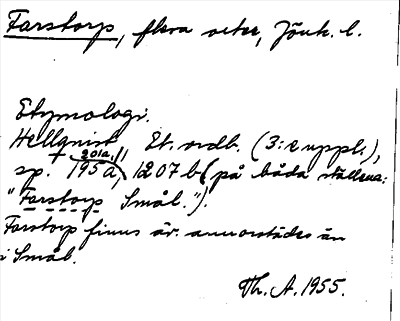 Farstorp, flera orter, Jönk. l.
Etymologi.
Hellquist Et. ordb. (3:e uppl.),
201a,
sp. 195 a, 1207 b (på båda ställena:
"Farstorp Smål.").
Farstorp finns är. annorstädes än
i Smål.
Th. A. 1955.